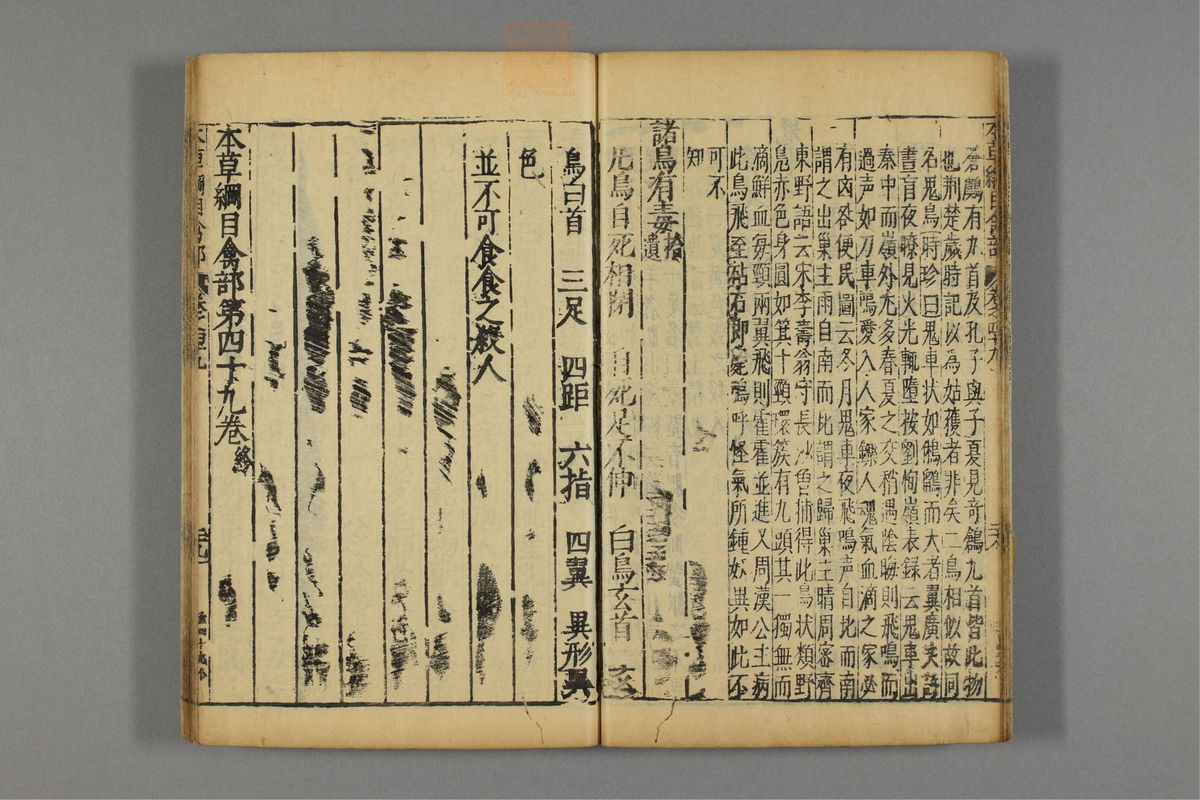 蒼鸆有九首及孔子與子夏見奇鶬九首皆此物
也荆楚歲時記以為姑獲者非矣二鳥相似故同
名鬼鳥時珍曰鬼車状如鵂鶹而大者翼廣丈許
晝盲夜瞭見火光輒墮按劉恂嶺表録云鬼車出
秦中而嶺外尤多春夏之交稍遇陰晦則飛鳴而
過声如刀車鳴愛入人家鑠人魂氣血滴之家必
有凶咎便民圖云冬月鬼車夜飛鳴声自北而南
謂之出巢主雨自南而北謂之歸巢主晴周密齊
東野語云宋李壽翁守長沙曾捕得此鳥状類野
鳧赤色身圓如箕十頸環簇有九頭其一獨無而
滴鮮血每頸兩翼飛則霍霍並進又周漢公主病
此鳥飛至砧石即薨嗚呼怪氣所鍾妖異如此不
可不
知
諸鳥有毒拾遺
凡鳥自死目不閉 自死足不伸 白鳥玄首 玄
鳥白首 三足 四距 六指 四翼 異形異
色
並不可食食之殺人
本草綱目禽部第四十九卷終